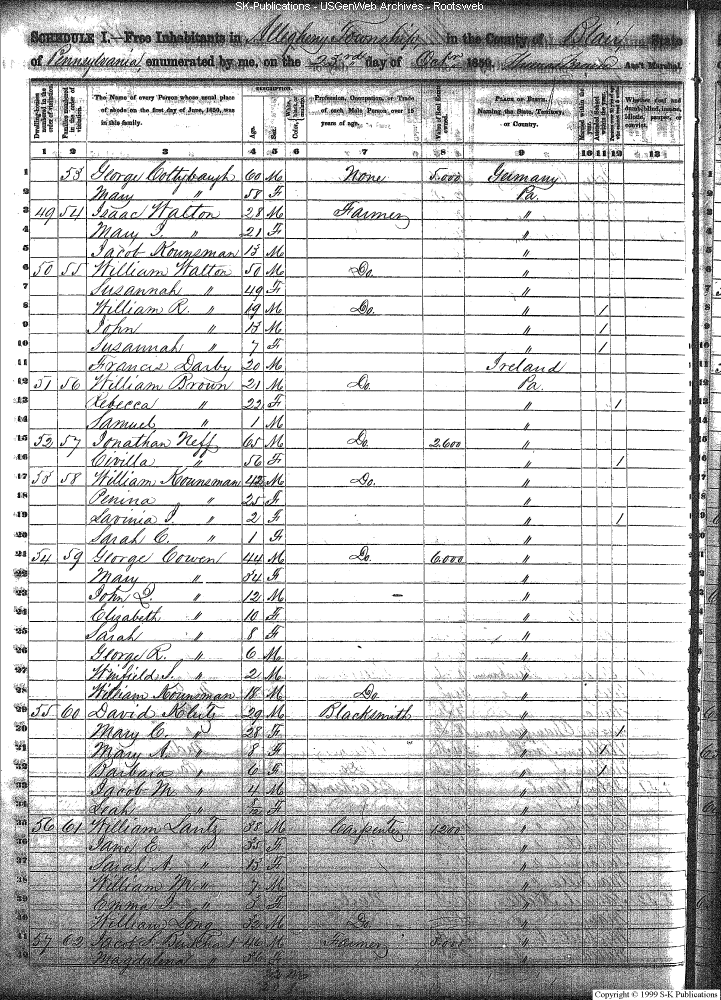 SK-Publications - USGenWeb Archives - Rootsweb
SCHEDULE I.—Free Inhabitants in Allegheny Township in the County of Blair State
of Pennsylvania enumerated by me, on the 23rd day of Octr 1850. Ass't Marshal.
DESCRIPTION.
Dwelling-houses numbered in the order of visitation.
Families numbered in the order of visitation.
The Name of every Person whose usual place of abode on the first day of June, 1850, was in this family.
Age.
Sex.
Profession, Occupation, or Trade of each Male Person over 15 years of age.
Value of Real Estate owned.
PLACE OF BIRTH. Naming the State, Territory, or Country.
Whether deaf and dumb, blind, insane, idiotic, pauper, or convict.
1 2 3 4 5 6 7 8 9 10 11 12 13
1 53 George Cottybaugh 60 M None 5.000 Germany
2 Mary " 58 F Pa.
3 49 54 Isaac Walton 28 M Farmer "
4 Mary J. " 21 F "
5 Jacob Kounsman 13 M "
6 50 55 William Walton 50 M Do. "
7 Susannah " 49 F "
8 William R. " 19 M Do. " 1
9 John " 13 M " 1
10 Susannah " 7 F " 1
11 Francis Darby 20 M Ireland
12 51 56 William Brown 21 M Do. Pa.
13 Rebecca " 22 F " 1
14 Samuel " 1 M "
15 52 57 Jonathan Neff 65 M Do. 2.600 "
16 Civilla " 56 F " 1
17 53 58 William Kounsman 42 M Do. "
18 Penina " 25 F "
19 Lavinia J. " 2 F " 1
20 Sarah C. " 1 F "
21 54 59 George Cowen 44 M Do. 6.000 "
22 Mary " 34 F "
23 John Q. " 12 M - "
24 Elizabeth " 10 F "
25 Sarah " 8 F "
26 George R. " 6 M "
27 Winfield S. " 2 M "
28 William Kounsman 18 M Do. "
29 55 60 David Klutz 29 M Blacksmith "
30 Mary C. " 28 F " 1
31 Mary A. " 8 F " 1
32 Barbara " 6 F " 1
33 Jacob M. " 4 M "
34 Leah " F "
35 56 61 William Lantz 38 M Carpenter 1200 "
36 Jane E. " 35 F "
37 Sarah A. " 13 F "
38 William M. " 7 M "
39 Emma J. " F "
40 William Long 32 M Do. "
41 57 62 Jacob S. Burkhart 46 M Farmer "
42 Magdalena " 36 F "
Copyright © 1999 S-K Publications